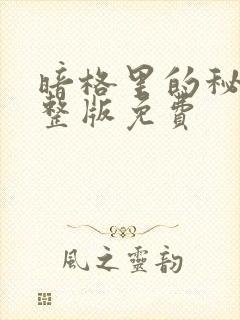 暗格里的秘
整版免费
風之靈韵